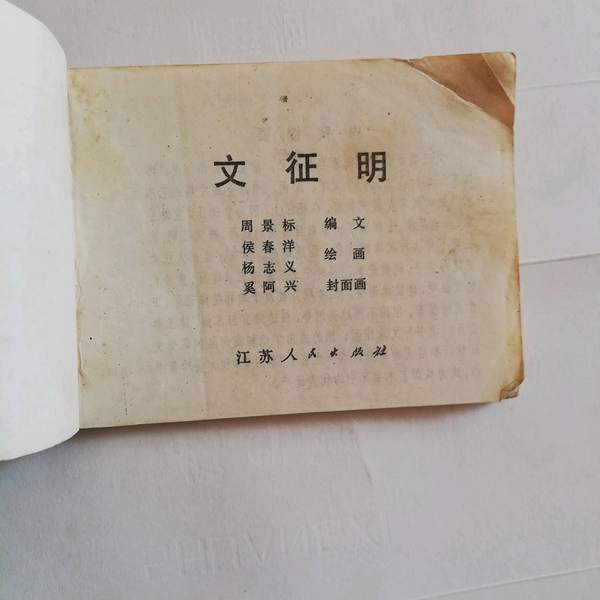 文征明
周景标 编文
侯春洋
杨志义 绘画
奚阿兴 封面画
江苏人民出版社